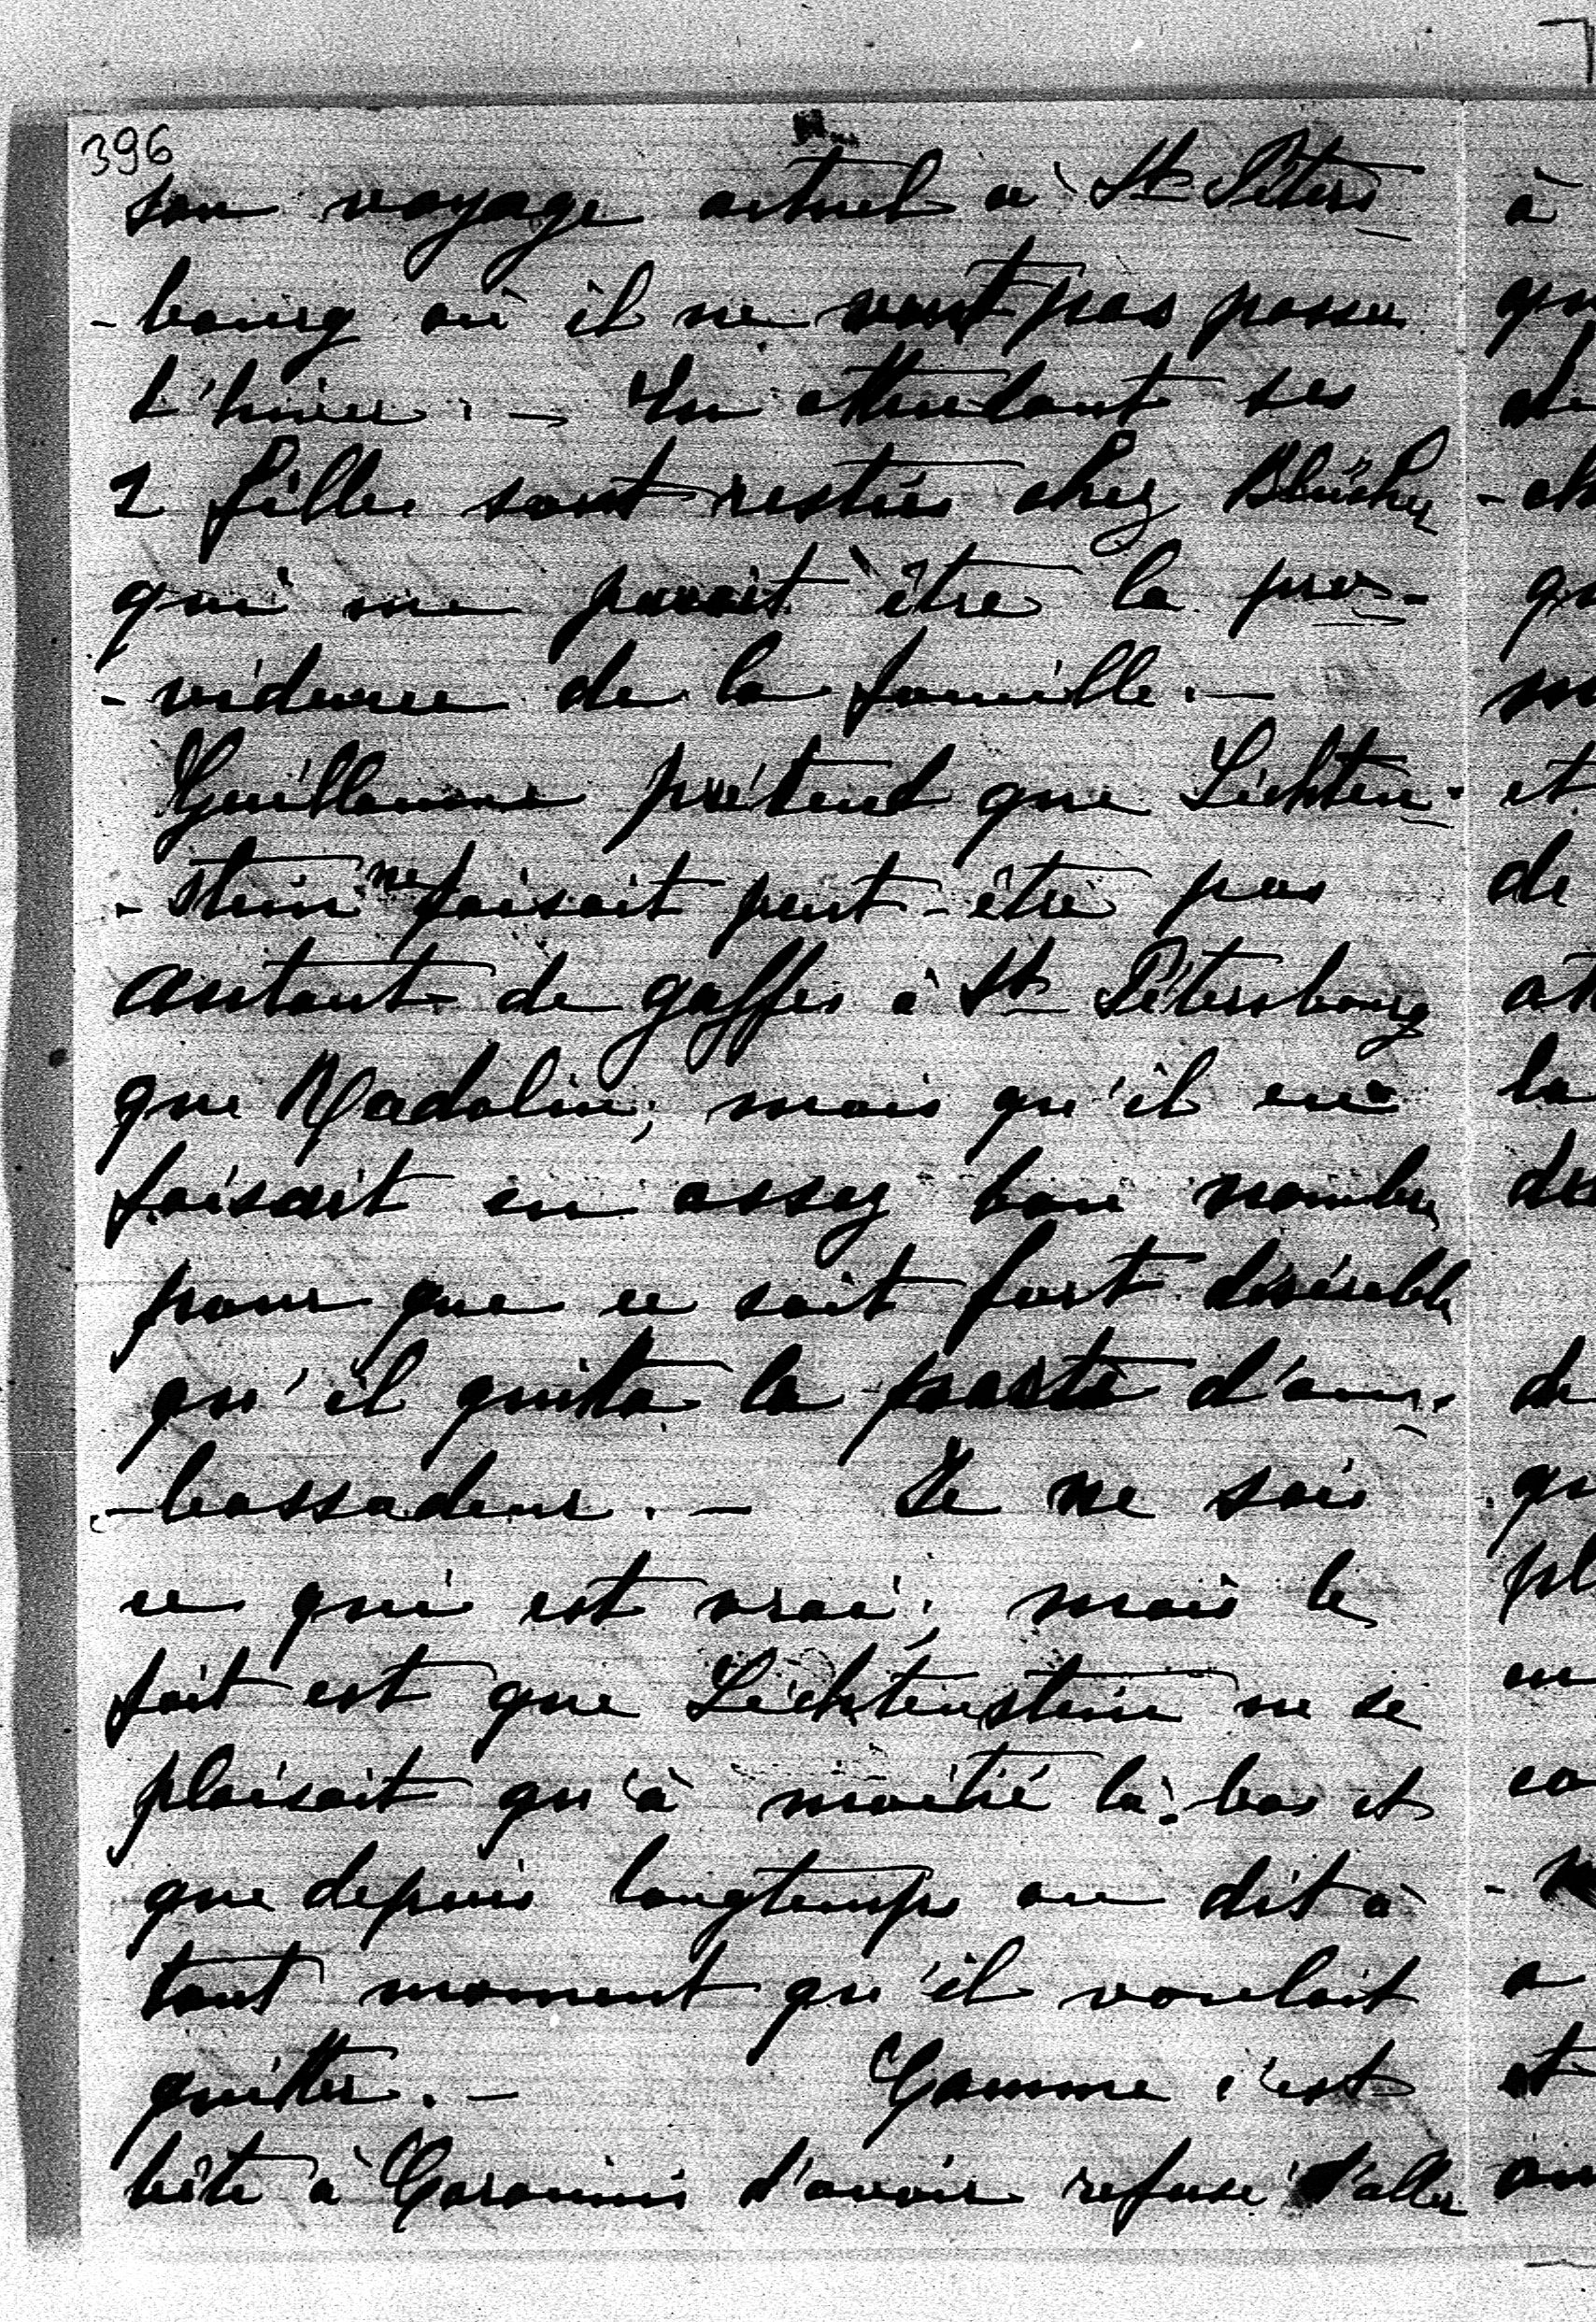 396
son voyage actuel à St Péters
-bourg où il ne veut pas passer
l'hiver. — En attendant ses
2 filles sont restées chez Blücher
qui me parait être la pro-
-vidence de la famille. —
Guillaume prétend que Lichten-
-stein ne faisait peut-être pas
autant de gaffes à St Pétersbourg
que Radolin; mais qu'il en
faisait un assez bon nombre
pour que ce soit fort désirable
qu'il quitta le poste d'am-
-bassadeur. — Je ne sais
ce qui est vrai; mais le
fait est que Lichtenstein ne se
plaisait qu'à moitié là-bas et
que depuis longtemps on dit à
tout moment qu'il voulait
quitter. — Comme c'est
bête à d'avoir refusé d'aller